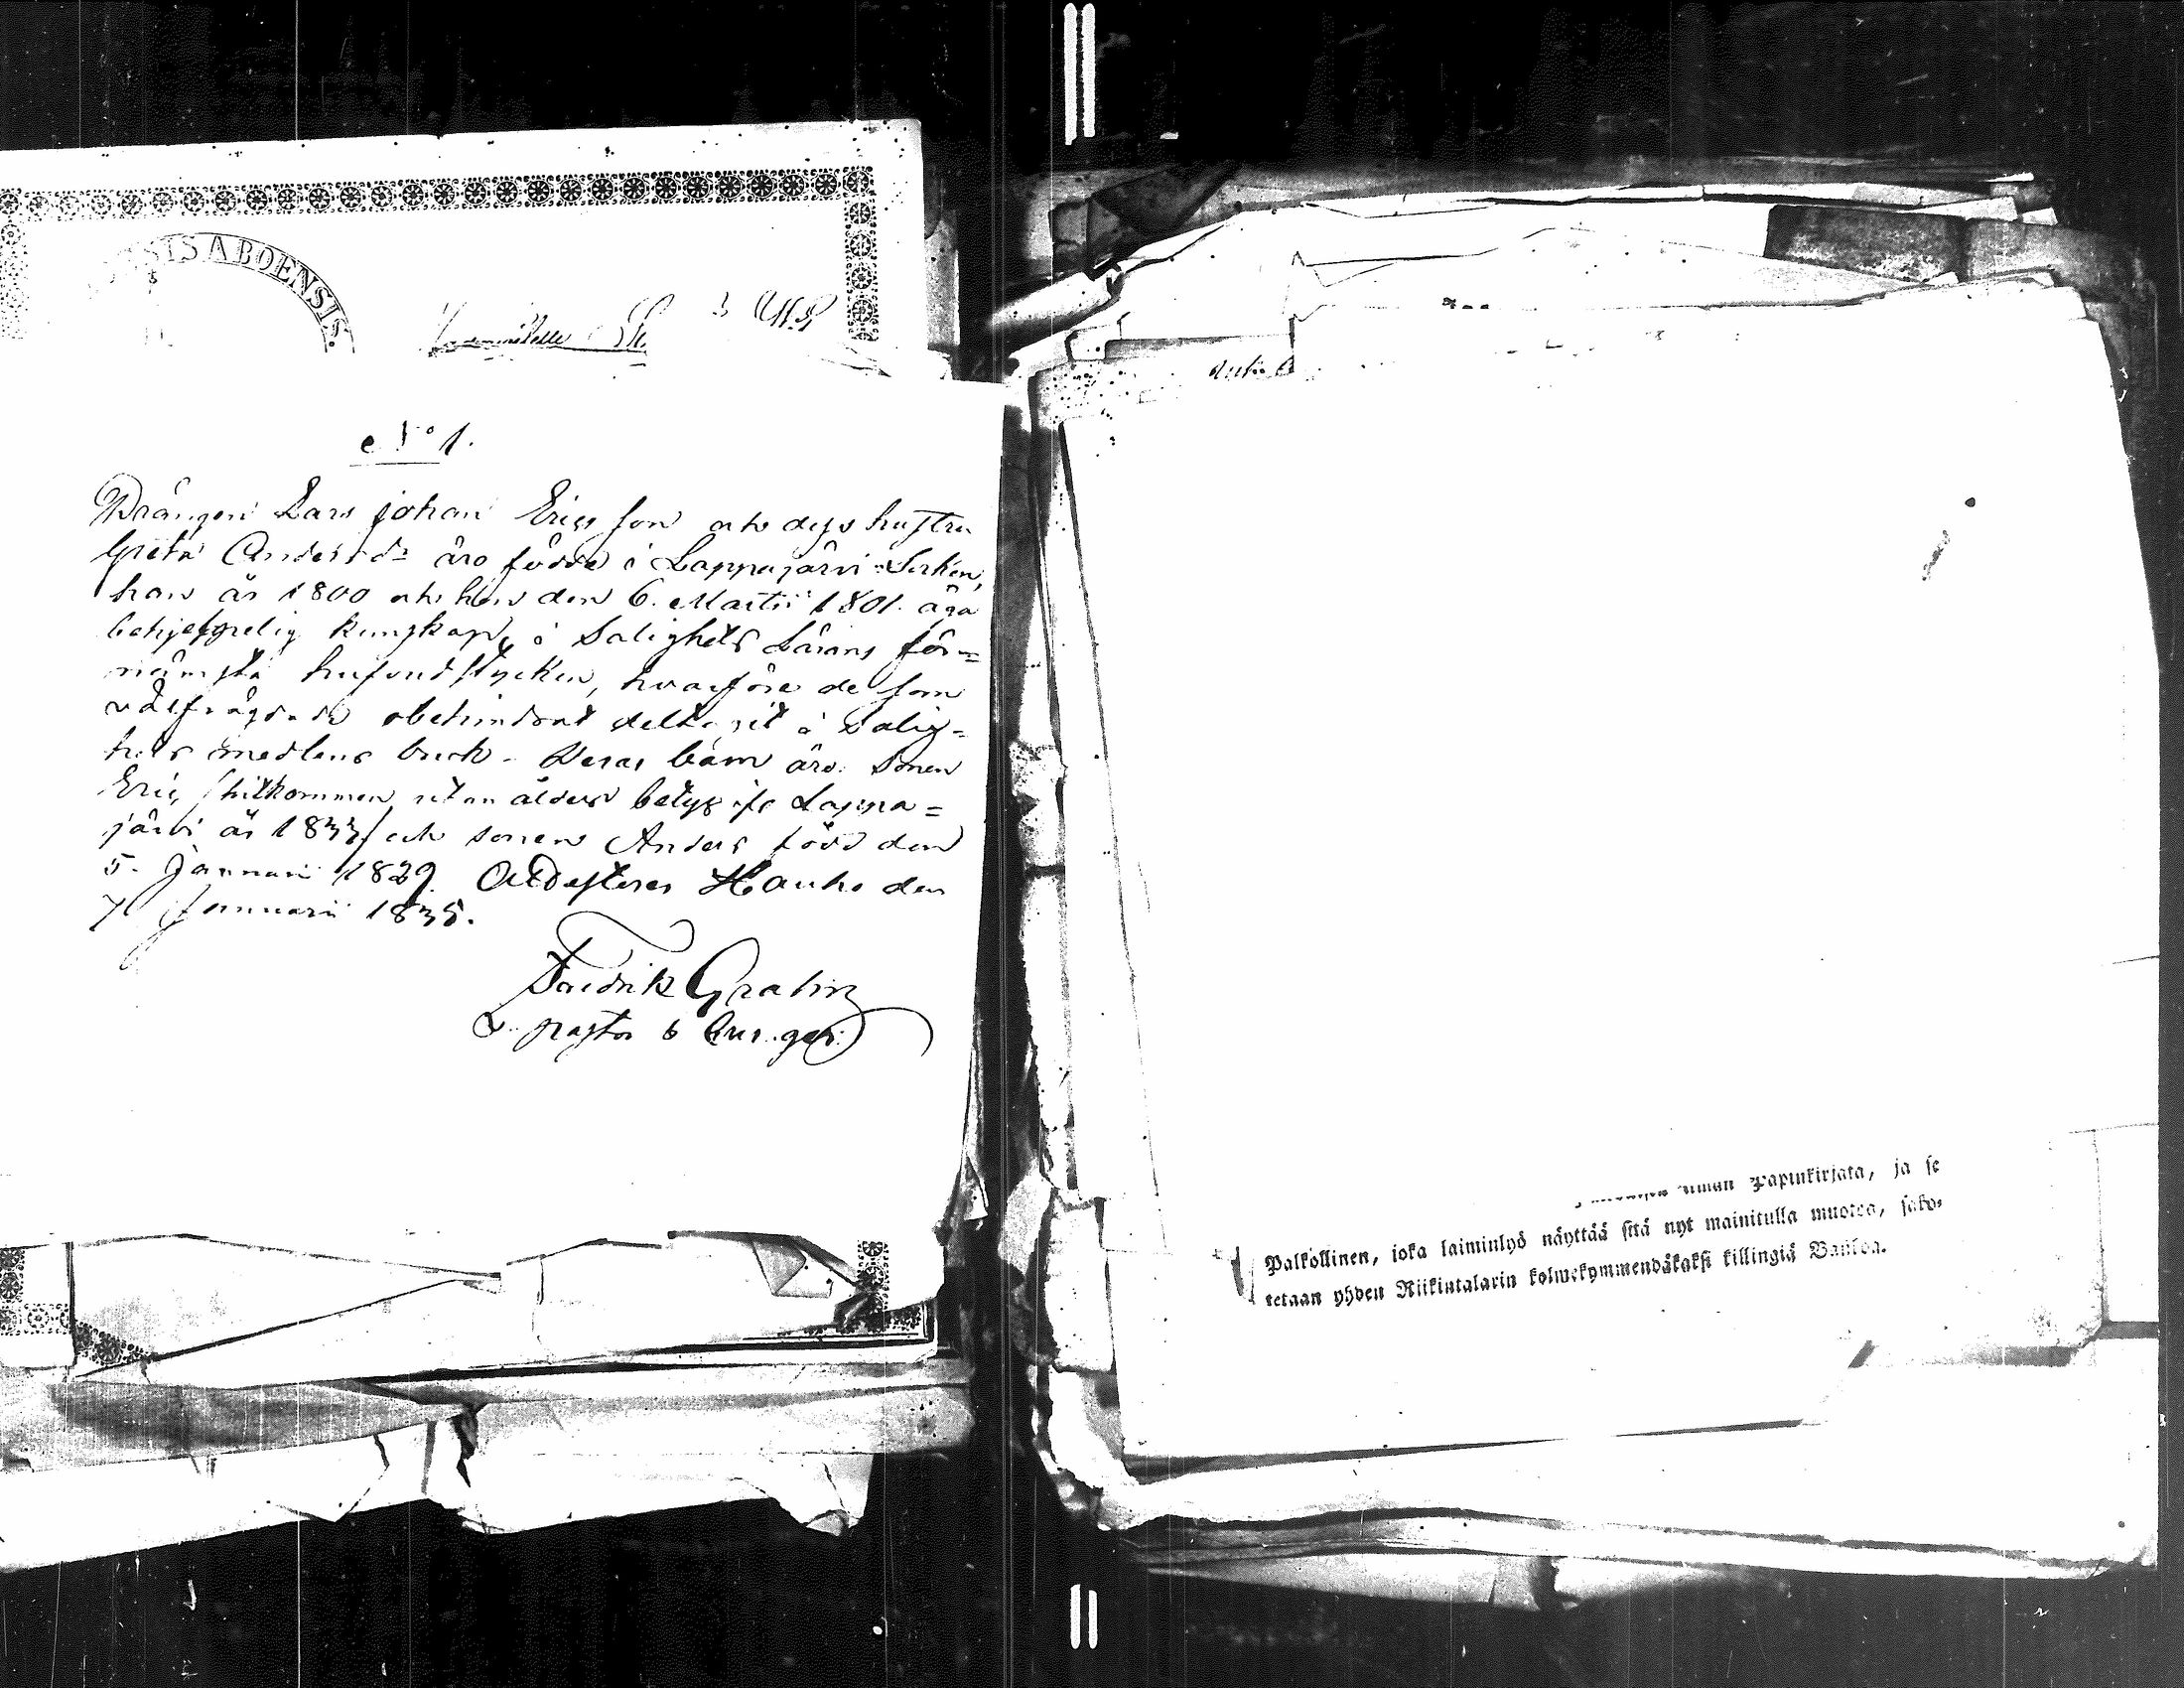 ABOENSIS.
No 1.
Drängen Lars Johan Ericsson och dess hustru
Greta Andersdr äro födde i Lappajärvi Socken,
han år 1800 och hon den 6. Martii 1801. äga
behjelpelig kunskap i Salighets Lärans för=
nämsta hufvudstycken, hvarföre de som
välfrägdade obehindrat deltagit i Salig=
hets medlens bruk. Deras barn äro: Sonen
Eric, (hitkommen utan ålders betyg ifr Lappa=
järvi år 1833) och sonen Anders född den
5. Januari 1829. Attesteras Hauho den
7 Januarii 1835.
Fredrik Grahn
v. pastor
Papinkirjata, ja se
Palkollinen, joka laiminlyö näyttää sitä nyt mainitulla muotoa, sako-
tetaan yhden Riikintalarin kolmekymmendäkaksi killingiä Bankoa.